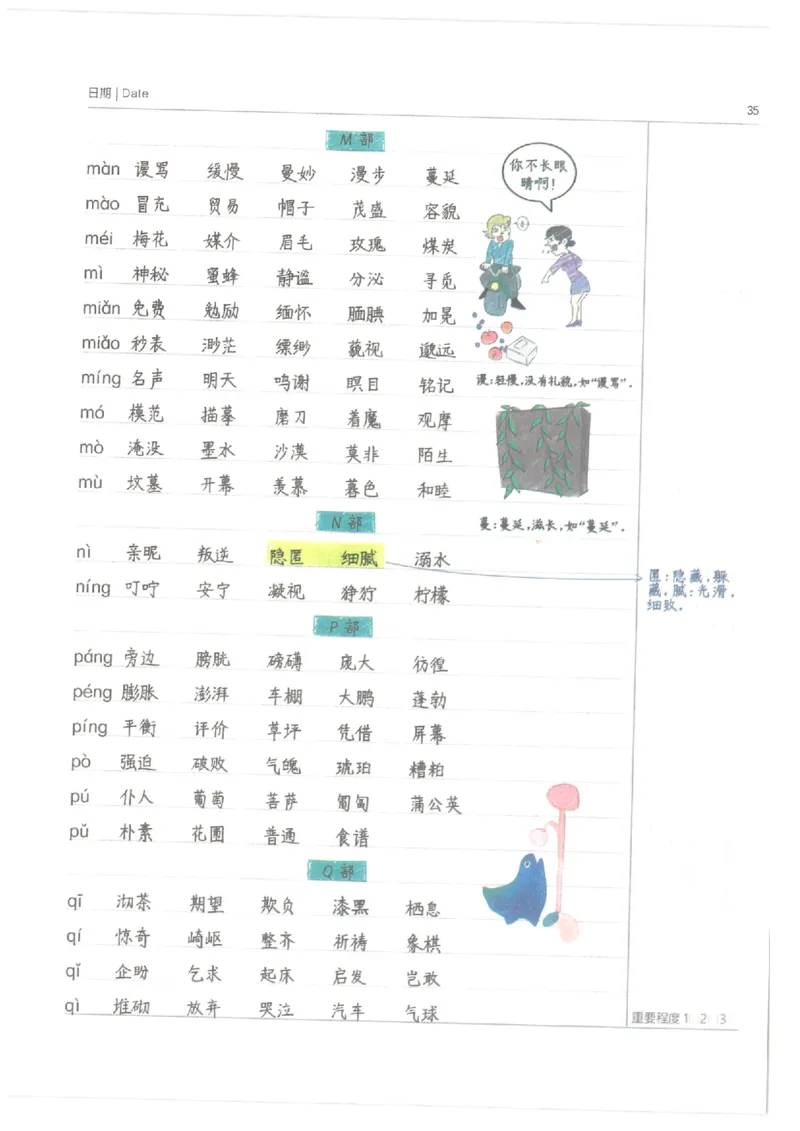 日期 | Date
35
M部
màn 谩骂 缓慢 曼妙 漫步 蔓延
mào 冒充 贸易 帽子 茂盛 容貌
méi 梅花 媒介 眉毛 玫瑰 煤炭
mì 神秘 蜜蜂 静谧 分泌 寻觅
miǎn 免费 勉励 缅怀 腼腆 加冕
miǎo 秒表 渺茫 缥缈 藐视 邈远
míng 名声 明天 鸣谢 瞑目 铭记
mó 模范 描摹 磨刀 着魔 观摩
mò 淹没 墨水 沙漠 莫非 陌生
mù 坟墓 开幕 羡慕 暮色 和睦
你不长眼
睛啊!
谩:轻慢,没有礼貌,如“谩骂”.
蔓:蔓延,滋长,如“蔓延”.
N部
nì 亲昵 叛逆 隐匿 细腻 溺水
níng 叮咛 安宁 凝视 狰狞 柠檬
匿:隐藏,躲
藏,腻:光滑,
细致.
P部
páng 旁边 膀胱 磅礴 庞大 彷徨
péng 膨胀 澎湃 车棚 大鹏 蓬勃
píng 平衡 评价 草坪 凭借 屏幕
pò 强迫 破败 气魄 琥珀 糟粕
pú 仆人 葡萄 菩萨 匍匐 蒲公英
pǔ 朴素 花圃 普通 食谱
Q部
qī 沏茶 期望 欺负 漆黑 栖息
qí 惊奇 崎岖 整齐 祈祷 象棋
qǐ 企盼 乞求 起床 启发 岂敢
qì 堆砌 放弃 哭泣 汽车 气球
重要程度 1 2 3